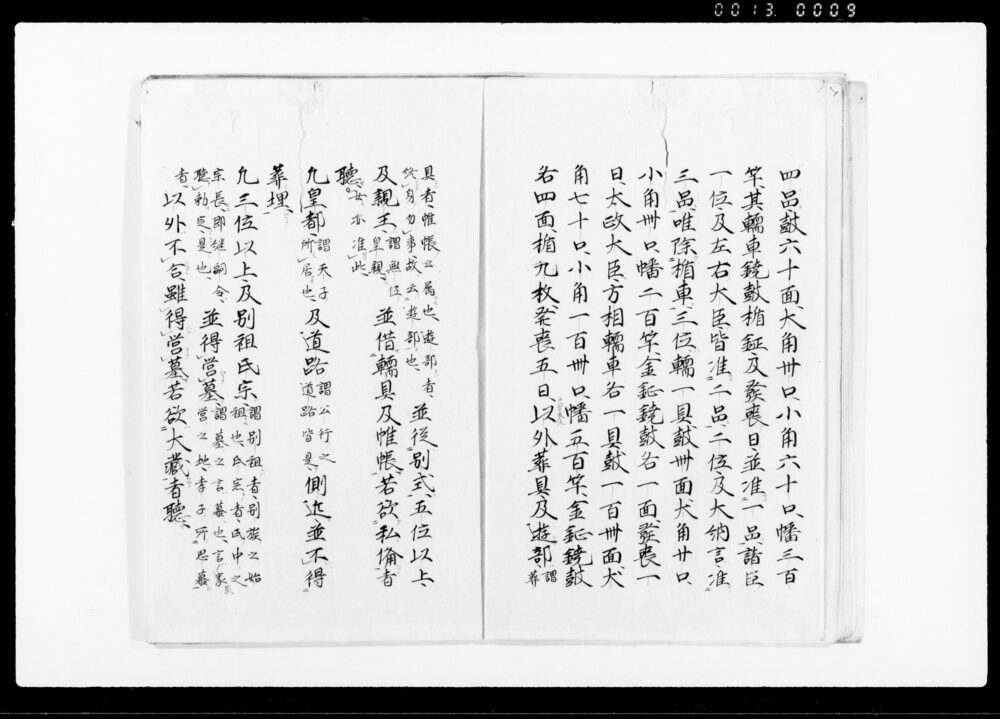 0013 0009
四品鼓六十面大角卌口小角六十口幡三百
竿其轜車鐃鼓楯鉦及發喪日並准一品諸臣
一位及左右大臣皆准二品二位及大納言准
三品唯除楯車三位轜一具鼓卌面大角廿口
小角卌口幡二百竿金鉦鐃鼓各一面發喪一
日太政大臣方相轜車各一具鼓一百卌面大
角七十口小角一百卌口幡五百竿金鉦鐃鼓
各四面楯九枚発喪五日以外葬具及遊部謂
葬
具者帷帳之属也遊部者
終身勿事故云遊部也
並從別式五位以上
及親王謂無位
皇親
並借轜具及帷帳若欲私備者
聽女亦准此
凡皇都謂天子
所居也
及道路謂公行之
道路皆是
側近並不得
葬埋
凡三位以上及別祖氏宗謂別祖者別族之始
祖也氏宗者氏中之
宗長即継嗣令
聴勅定是也
並得営墓謂墓之言慕也言冢
営之地孝子所思慕
者
以外不合雖得営墓若欲大蔵者聴